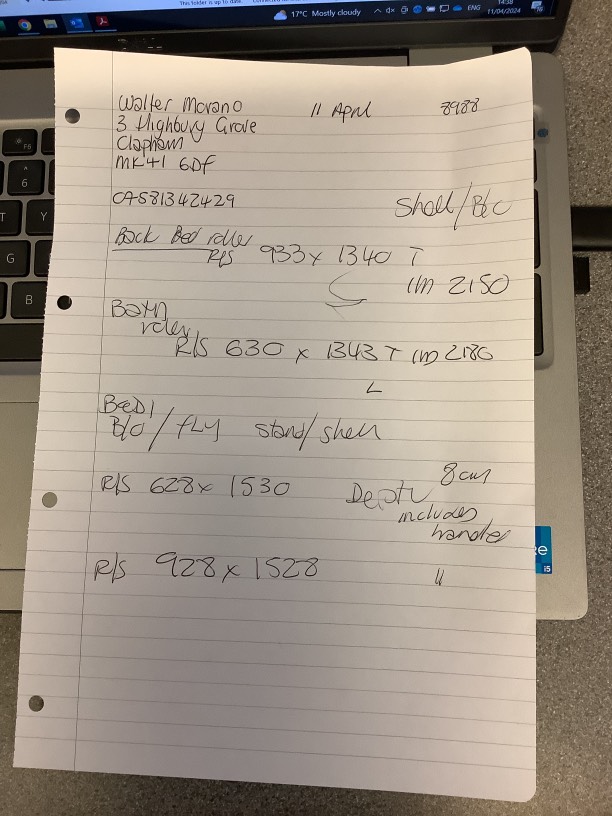 This folder is up to date
17°C Mostly cloudy
ENG
14:38
11/04/2024
Walter Morano 11 April 8988
3 Highbury Grove
Clapham
MK41 6DF
CAS81342429
Shell/BC
Back Bed roller
R/S 933 x 1340 T
1M 2150
Bath
roller
R/S 630 x 1343 T 1M 2180
L
Bed 1
B/O / FLY stand/shell
8cm
R/S 628 x 1530 Depth
includes
handles
R/S 928 x 1528 "
F6
6
T Y
G
B
i5